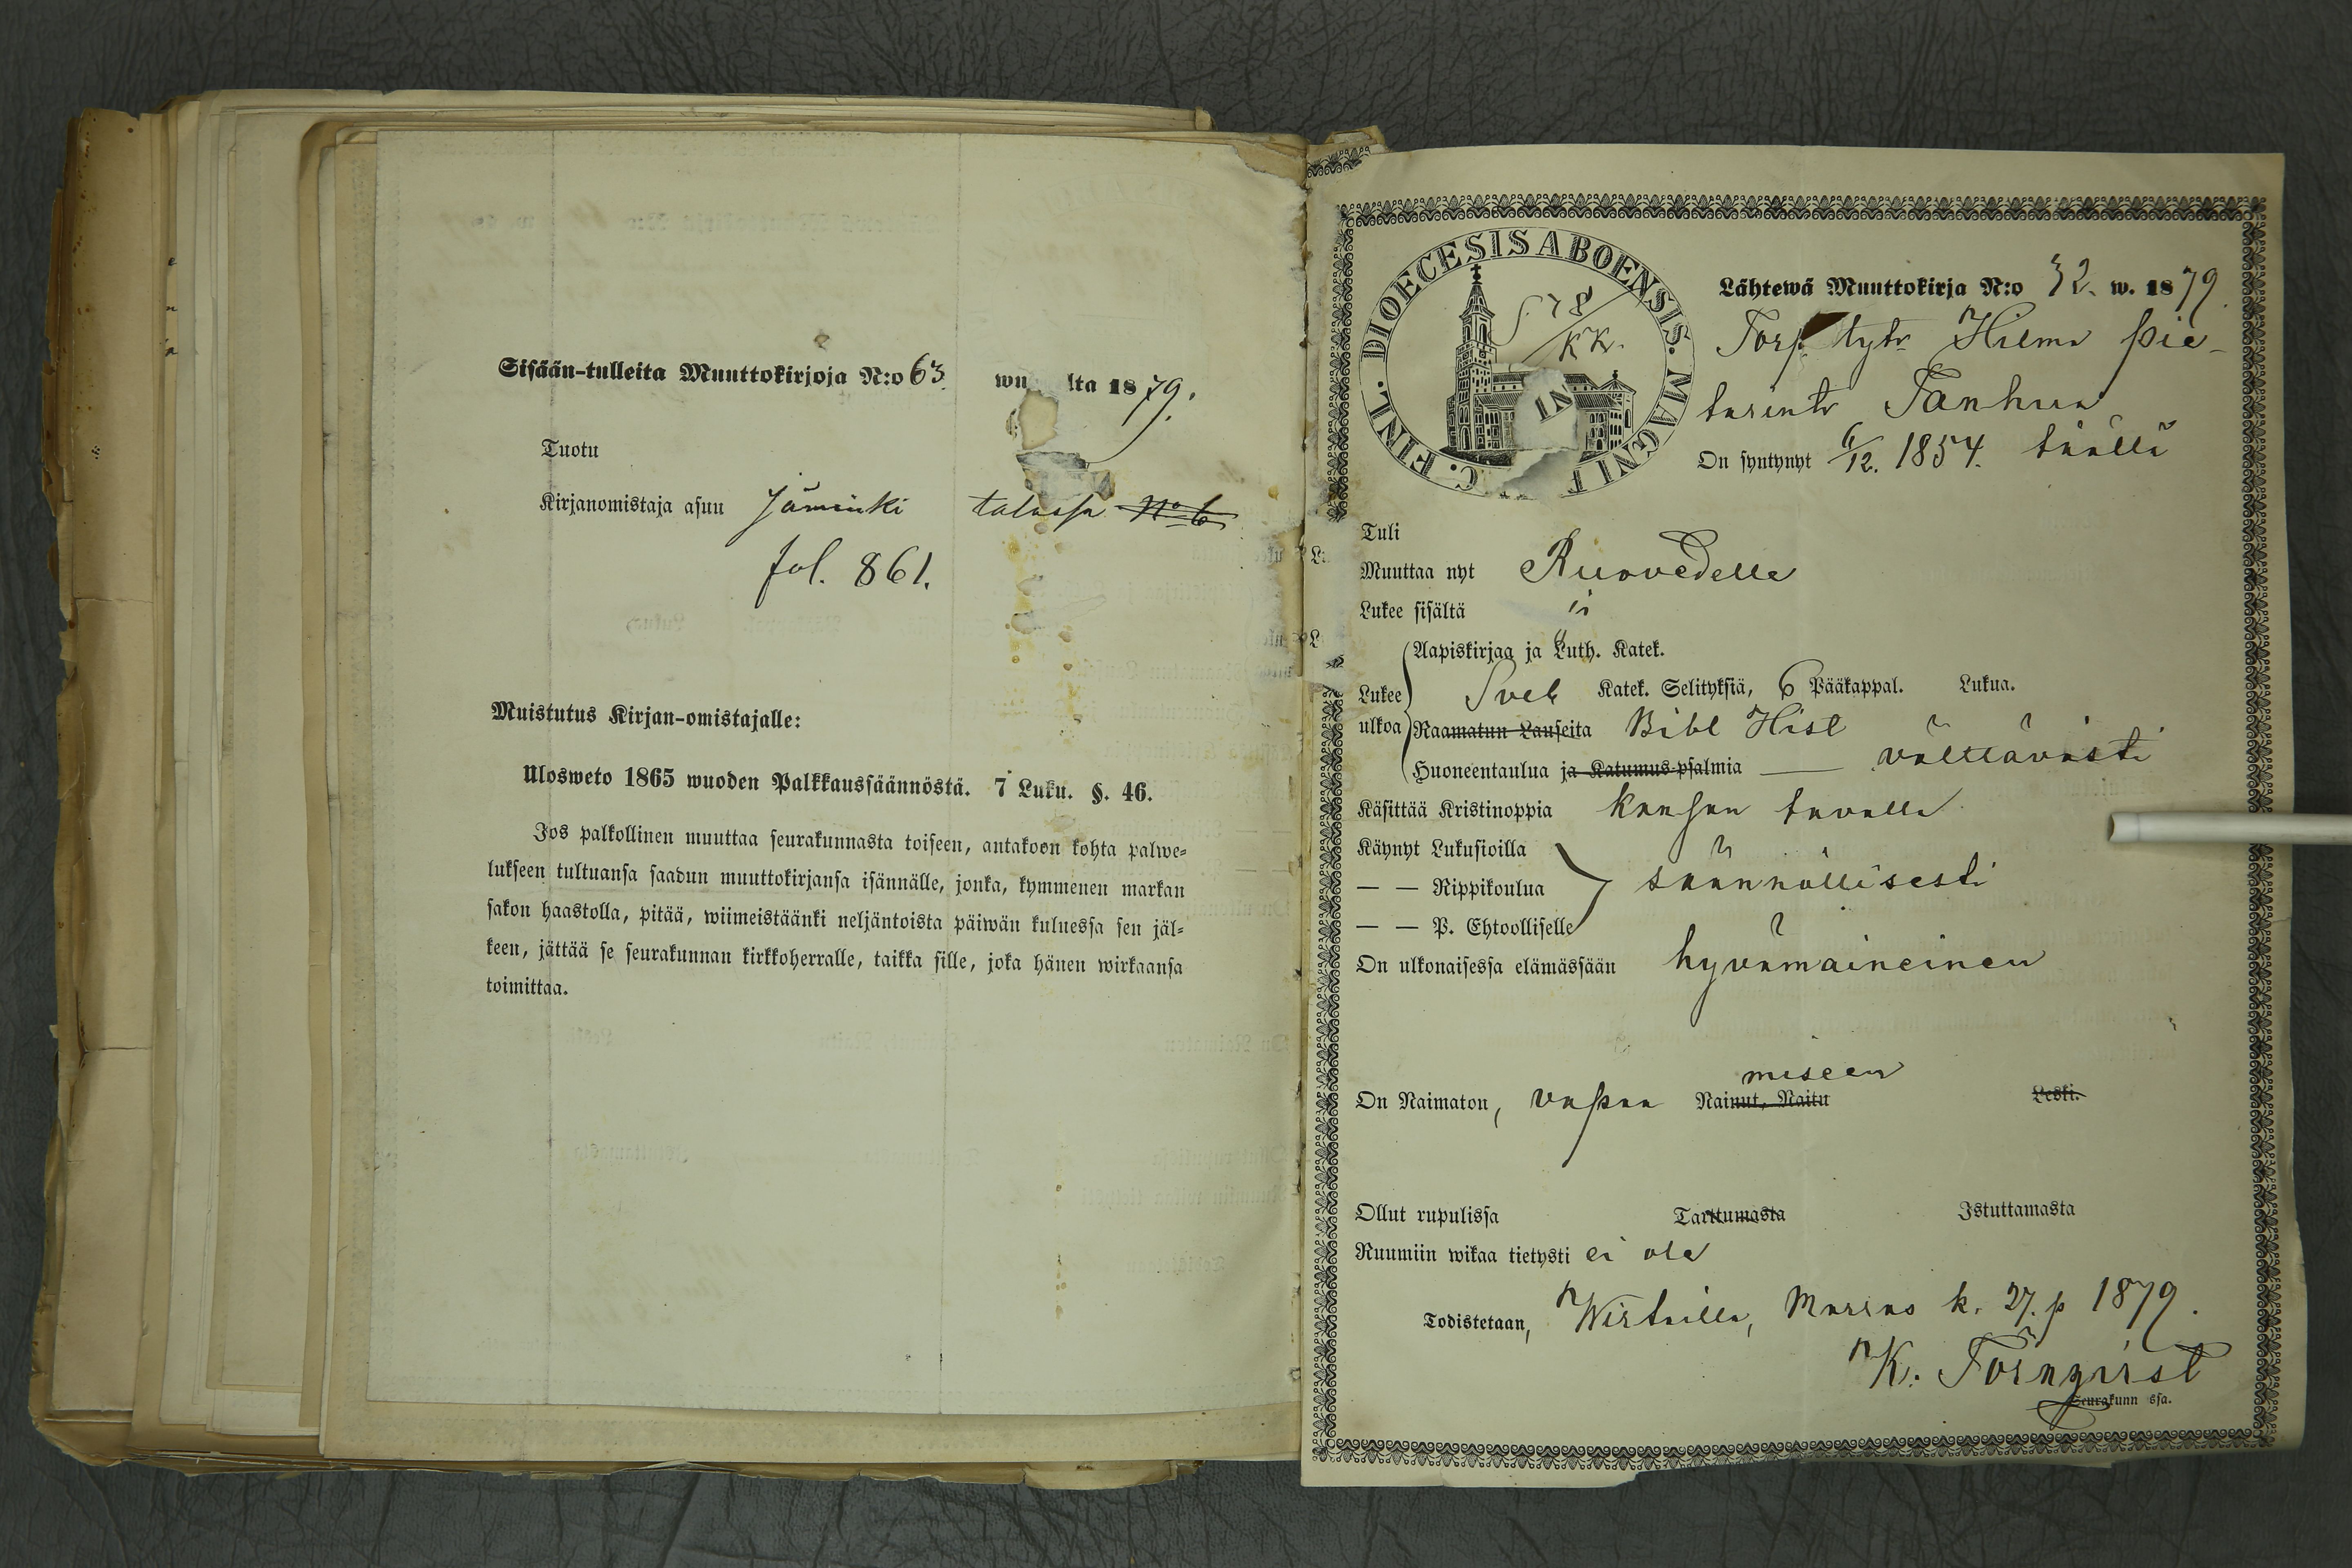 Sisään-tulleita Muuttokirjoja N:o 63. wu lta 1879.
Tuotu
Kirjanomistaja asuu Jäminki talossa No 6
fol. 861.
Muistutus Kirjan-omistajalle:
Ulosweto 1865 wuoden Palkkaussäännöstä. 7 Luku. §. 46.
Jos palkollinen muuttaa seurakunnasta toiseen, antakoon kohta palwe-
lukseen tultuansa saadun muuttokirjansa isännälle, jonka, kymmenen markan
sakon haastolla, pitää, wiimeistäänki neljäntoista päiwän kuluessa sen jäl-
keen, jättää se seurakunnan kirkkoherralle, taikka sille, joka hänen wirkaansa
toimittaa.
C. FINL. DIOECESIS ABOENSIS. MAGNI
S. 78
KK.
Lähtewä Muuttokirja N:o 32. w. 1879.
Torp. tytr Hilma Pie-
tarintr Tanhua
On syntynyt 6/12. 1854. täällä
Tuli
Muuttaa nyt Ruovedelle
Lukee sisältä
Aapiskirjaa ja Luth. Katek.
Lukee Sveb Katek. Selityksiä, 6 Pääkappal. Lukua.
ulkoa Raamatun Lauseita Bibl Hist
Huoneentaulua ja Katumus-psalmia välttävästi
Käsittää Kristinoppia kansan tavalla
Käynyt Lukusioilla
— — Rippikoulua säännöllisesti
— — P. Ehtoolliselle
On ulkonaisessa elämässään hyvämaineinen
miseen
On Naimaton, vapaa Nainut, Naitu Leski.
Ollut rupulissa Tarttumasta Istuttamasta
Ruumiin wikaa tietysti ei ole
Todistetaan, Wirtailla, Marras k. 27. p 1879.
K. Törnqvist
Seurakunn ssa.